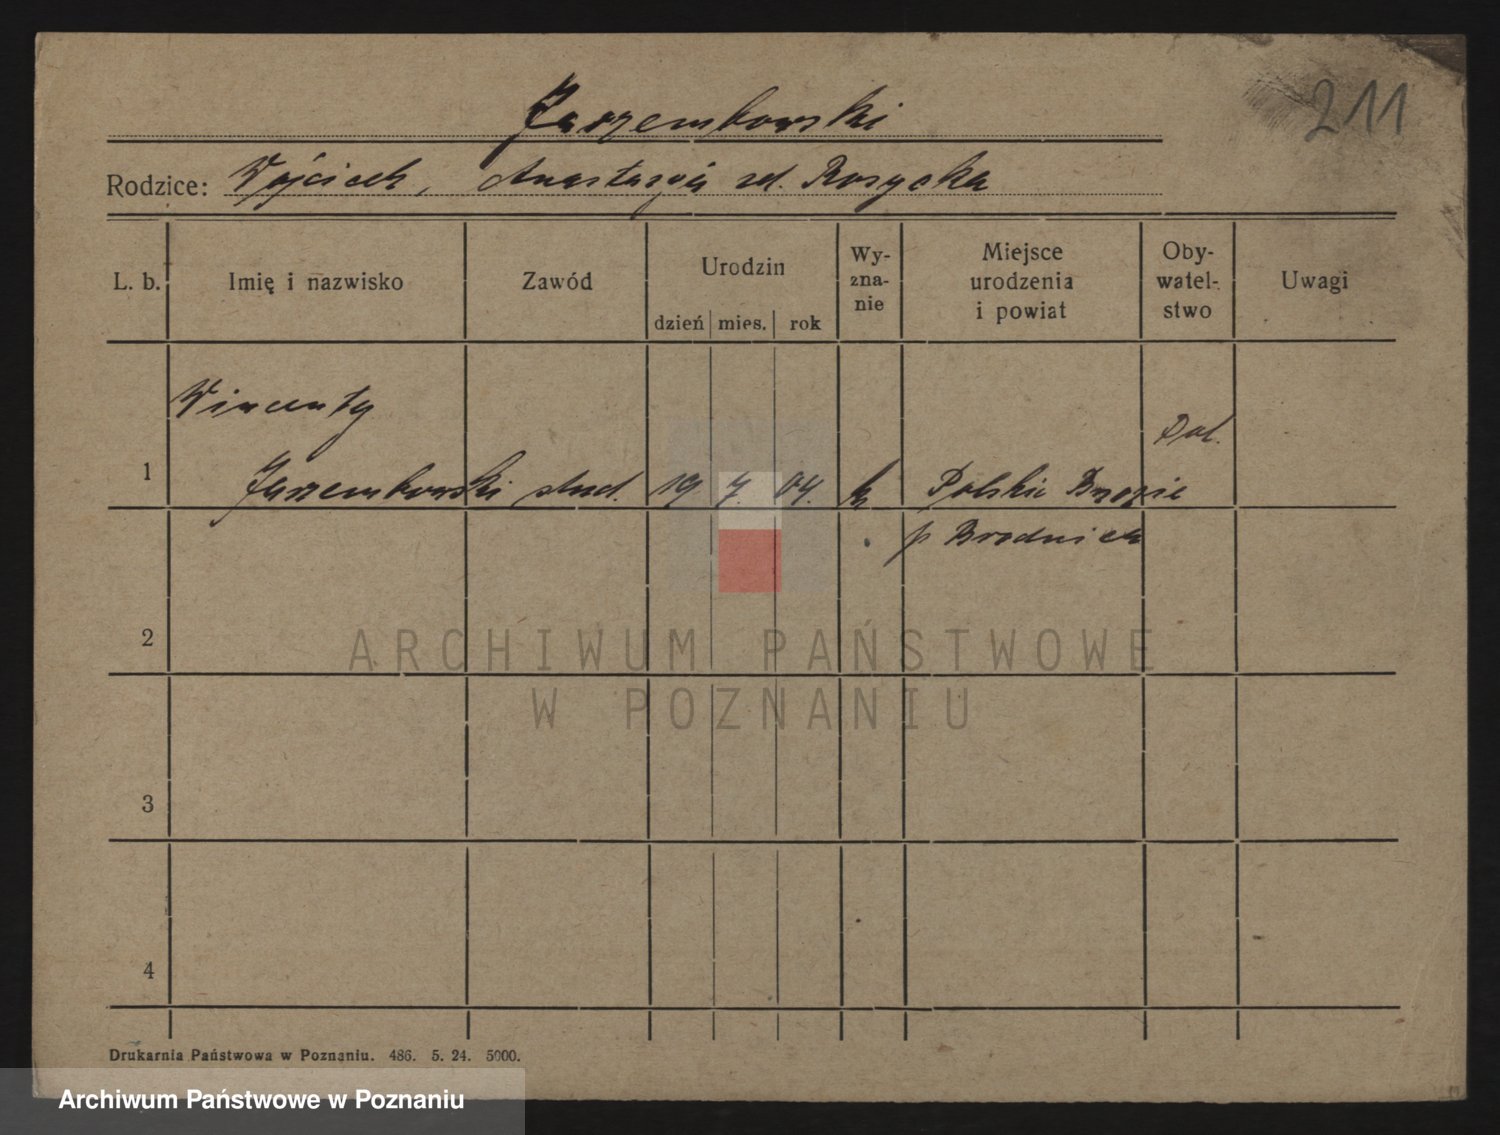 211
Jarzembowski
Rodzice: Wojciech, Anastazja zd. Rosycka
L. b. Imię i nazwisko Zawód Urodzin dzień mies. rok Wy-zna-nie Miejsce urodzenia i powiat Oby-watel-stwo Uwagi
Wincenty Pol.
1 Jarzembowski stud. 19 7. 04. k Polskie Brzozie
p Brodnica
2
ARCHIWUM PAŃSTWOWE
W POZNANIU
3
4
Drukarnia Państwowa w Poznaniu. 486. 5. 24. 5000.
Archiwum Państwowe w Poznaniu